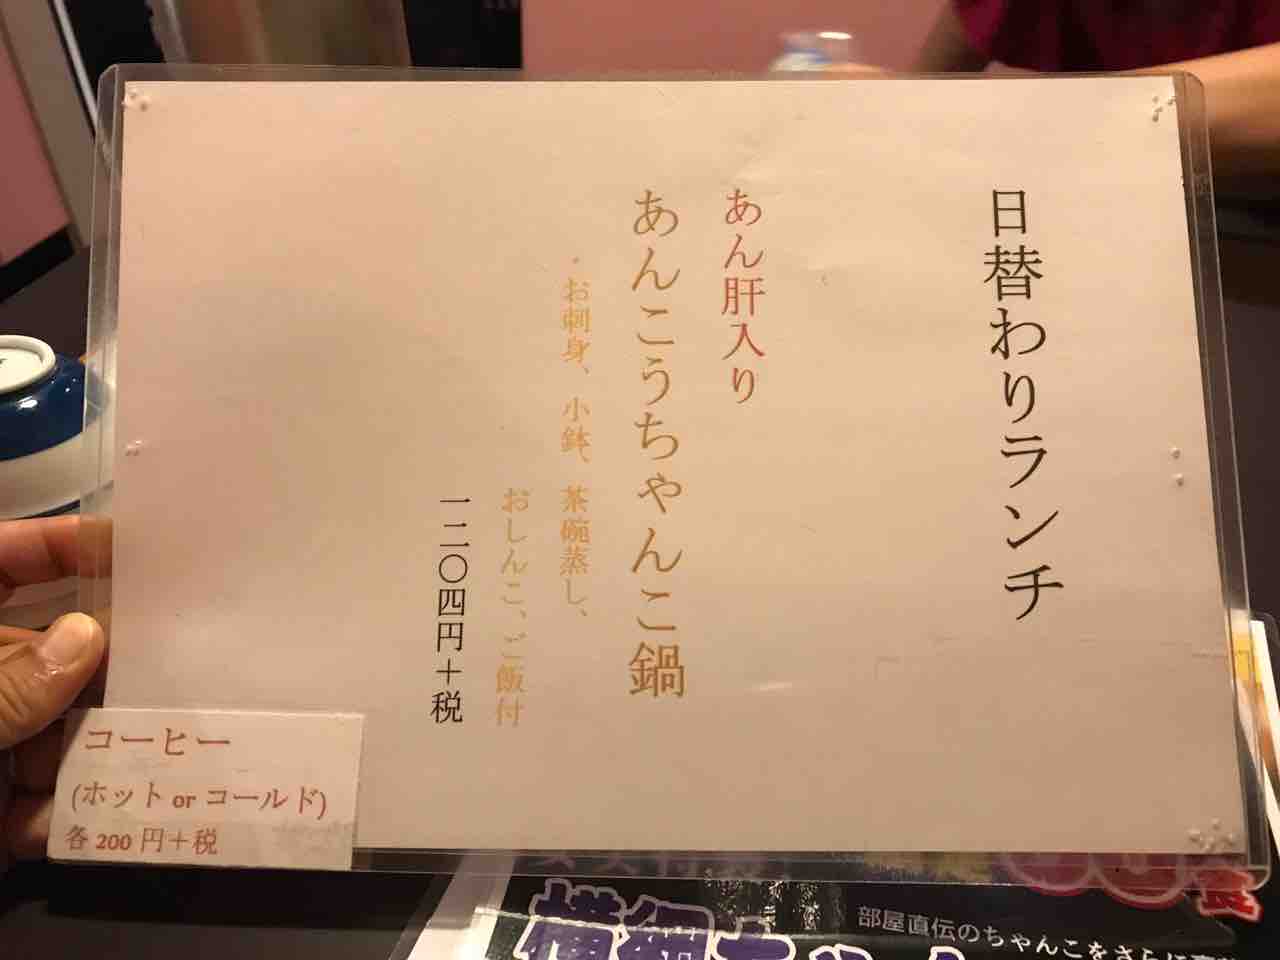 日替わりランチ
あん肝入り
あんこうちゃんこ鍋
・お刺身、小鉢、茶碗蒸し、
おしんこ、ご飯付
一二〇四円＋税
コーヒー
(ホット or コールド)
各 200 円＋税
部屋直伝のちゃんこをさらに
横綱